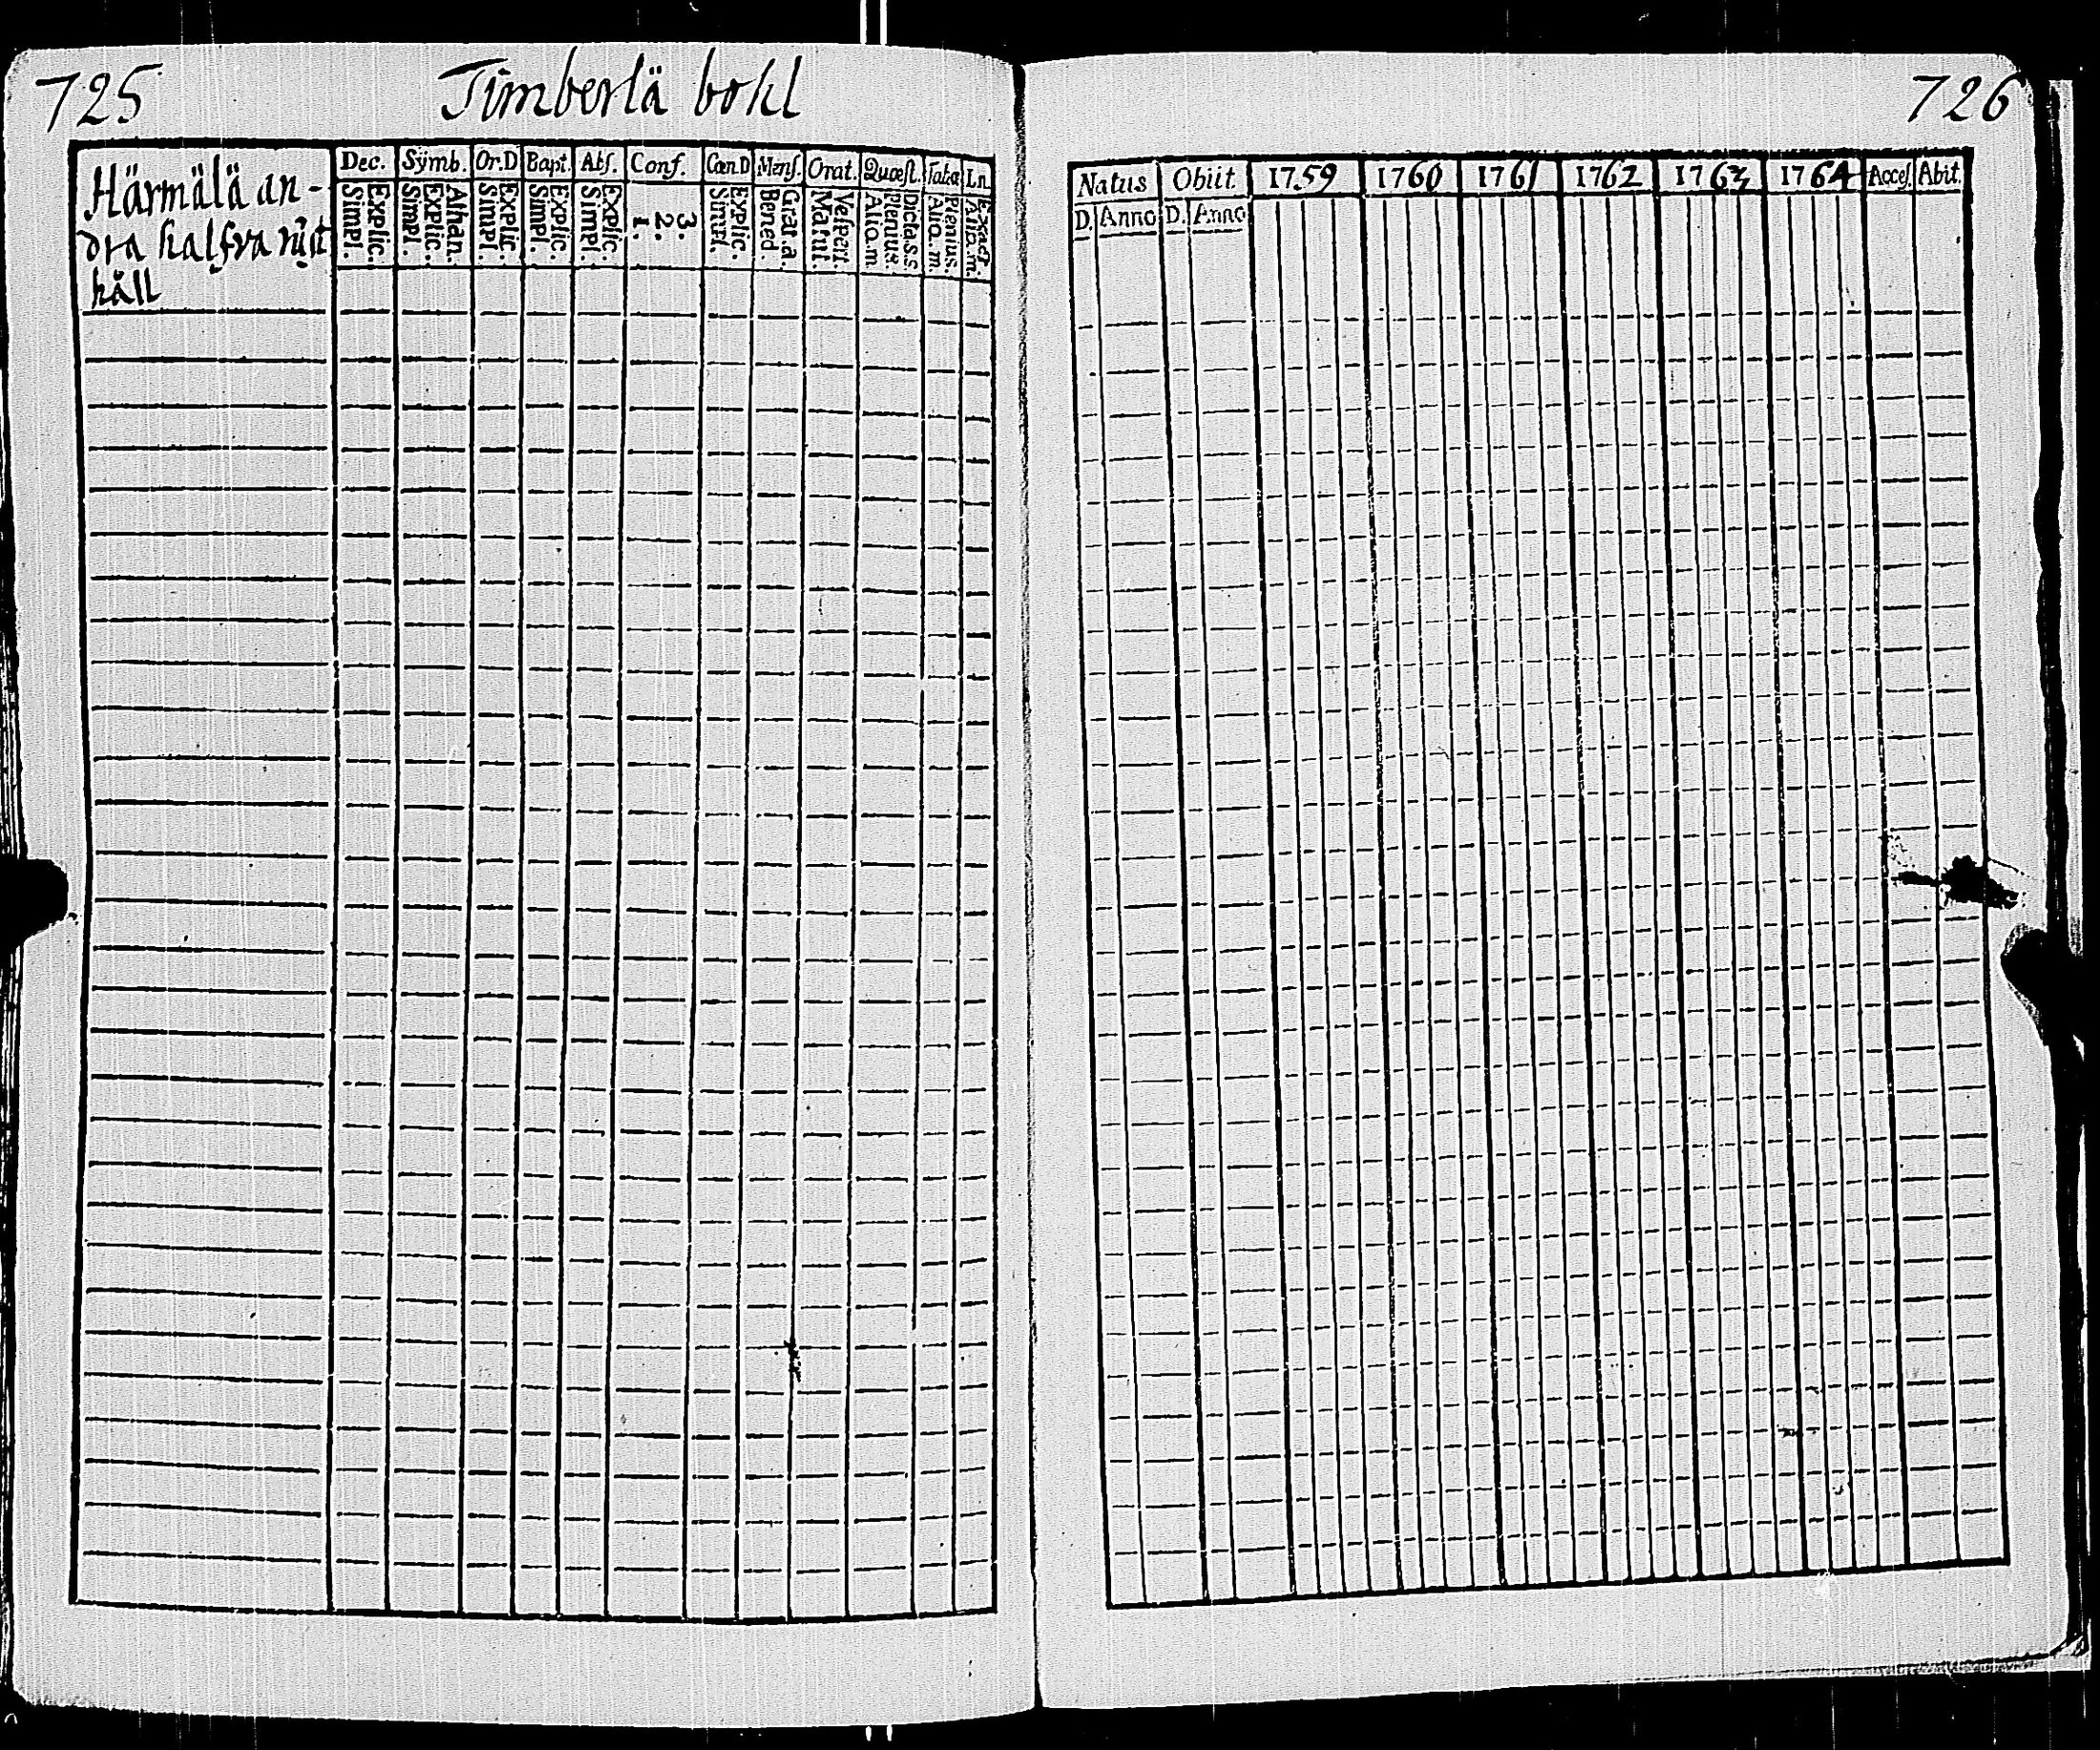 725
Timberlä bohl
Härmälä an-
dra halfva rüst
håll
Dec. Sÿmb. Or.D Bapt. Abſ. Conf. Cœn.D Menſ. Orat. Quæſt. Taba Ln.
Explic. Simpl.
Athan. Explic. Simpl.
Explic. Simpl.
Explic. Simpl.
Explic. Simpl.
3. 2. 1.
Explic. Simpl.
Grat.a. Bened.
Veſpert. Matut.
Dicta.s.s. Plenius. Alio.m.
Plenius. Alio.m.
Exact. Alio.m.
726
Natus Obiit. 1759 1760 1761 1762 1763 1764 Acceſ. Abit.
D. Anno D. Anno